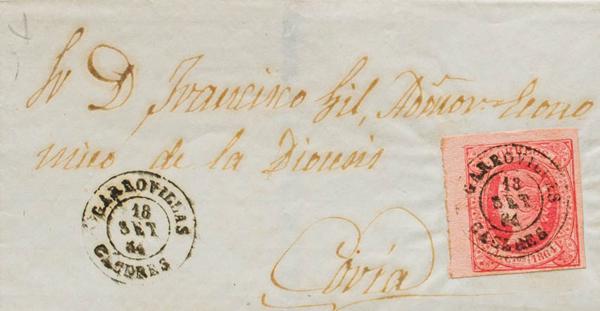 Sr D Francisco Gil, Admor Econo
mico de la Diocesis
Coria
GARROVILLAS
18
SET
64
CACERES
GARROVILLAS
18
SET
64
CACERES
1864